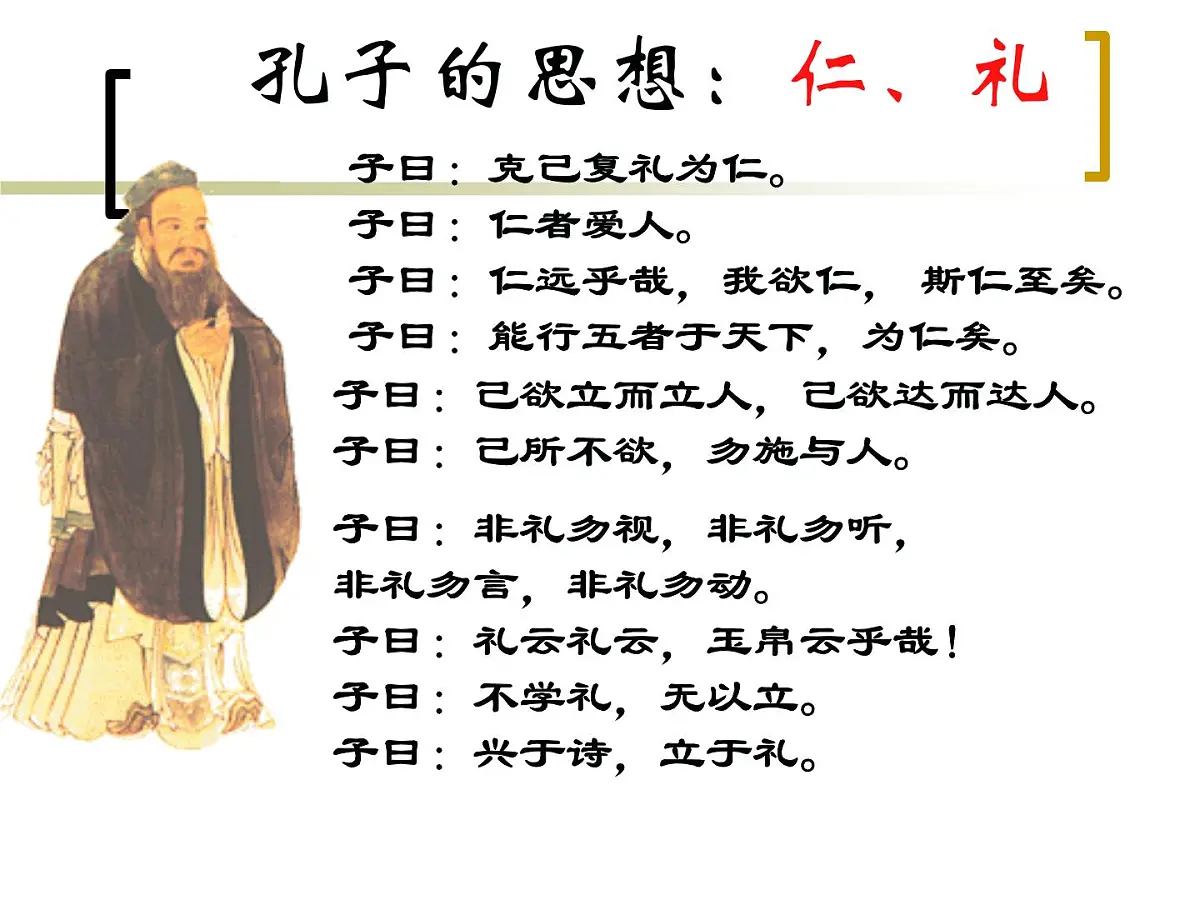 孔子的思想：仁、礼
子曰：克己复礼为仁。
子曰：仁者爱人。
子曰：仁远乎哉，我欲仁， 斯仁至矣。
子曰：能行五者于天下，为仁矣。
子曰：己欲立而立人，己欲达而达人。
子曰：己所不欲，勿施与人。
子曰：非礼勿视，非礼勿听，
非礼勿言，非礼勿动。
子曰：礼云礼云，玉帛云乎哉！
子曰：不学礼，无以立。
子曰：兴于诗，立于礼。